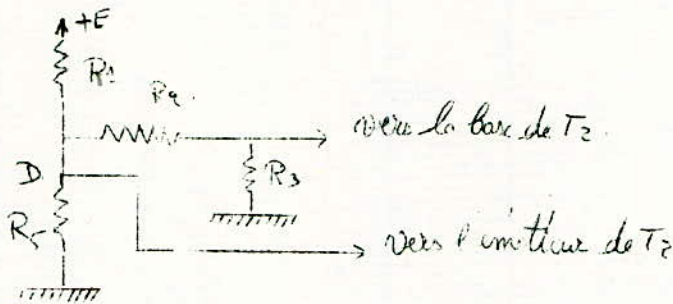 +E
R1
R2
vers la base de T2
D
R3
R5
vers l'émetteur de T2